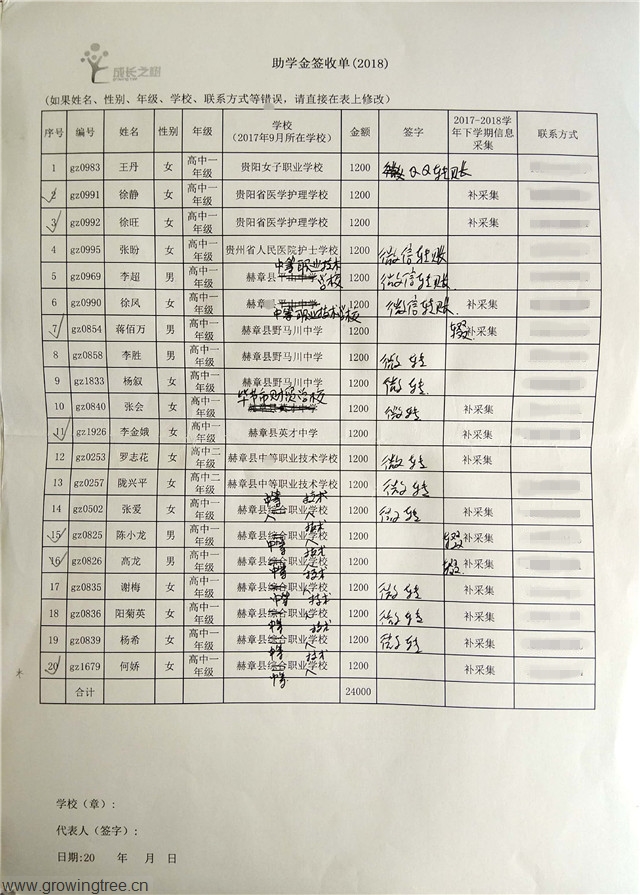 成长之树
GROWING TREE
助学金签收单(2018)
(如果姓名、性别、年级、学校、联系方式等错误，请直接在表上修改)
序号 编号 姓名 性别 年级 学校（2017年9月所在学校） 金额 签字 2017-2018学年下学期信息采集 联系方式
1 gz0983 王丹 女 高中一年级 贵阳女子职业学校 1200 微 QQ转账
2 gz0991 徐静 女 高中一年级 贵阳省医学护理学校 1200 补采集
3 gz0992 徐旺 女 高中一年级 贵阳省医学护理学校 1200 补采集
4 gz0995 张盼 女 高中一年级 贵州省人民医院护士学校 1200 微信转账
中等职业技术学校
5 gz0969 李超 男 高中一年级 赫章县 1200 微信转账
6 gz0990 徐风 女 高中一年级 赫章县 1200 微信转账 补采集
中等职业技术学校
7 gz0854 蒋佰万 男 高中一年级 赫章县野马川中学 1200 辍 补采集
8 gz0858 李胜 男 高中一年级 赫章县野马川中学 1200 微转
9 gz1833 杨叙 女 高中一年级 赫章县野马川中学 1200 微转
毕节市财贸学校
10 gz0840 张会 女 高中一年级 1200 微转 补采集
11 gz1926 李金娥 女 高中一年级 赫章县英才中学 1200 补采集
12 gz0253 罗志花 女 高中二年级 赫章县中等职业技术学校 1200 微转 补采集
13 gz0257 陇兴平 女 高中二年级 赫章县中等职业技术学校 1200 微转
中等 技术
14 gz0502 张爱 女 高中一年级 赫章县综合职业学校 1200 微转 补采集
技术
15 gz0825 陈小龙 男 高中一年级 赫章县综合职业学校 1200 辍 补采集
中等 技术
16 gz0826 高龙 男 高中一年级 赫章县综合职业学校 1200 辍 补采集
中等 技术
17 gz0835 谢梅 女 高中一年级 赫章县综合职业学校 1200 微转 补采集
中等 技术
18 gz0836 阳菊英 女 高中一年级 赫章县综合职业学校 1200 微转 补采集
中等 技术
19 gz0839 杨希 女 高中一年级 赫章县综合职业学校 1200 微转 补采集
中等 技术
20 gz1679 何娇 女 高中一年级 赫章县综合职业学校 1200 补采集
中等
合计 24000
学校（章）:
代表人（签字）:
日期:20 年 月 日
www.growingtree.cn